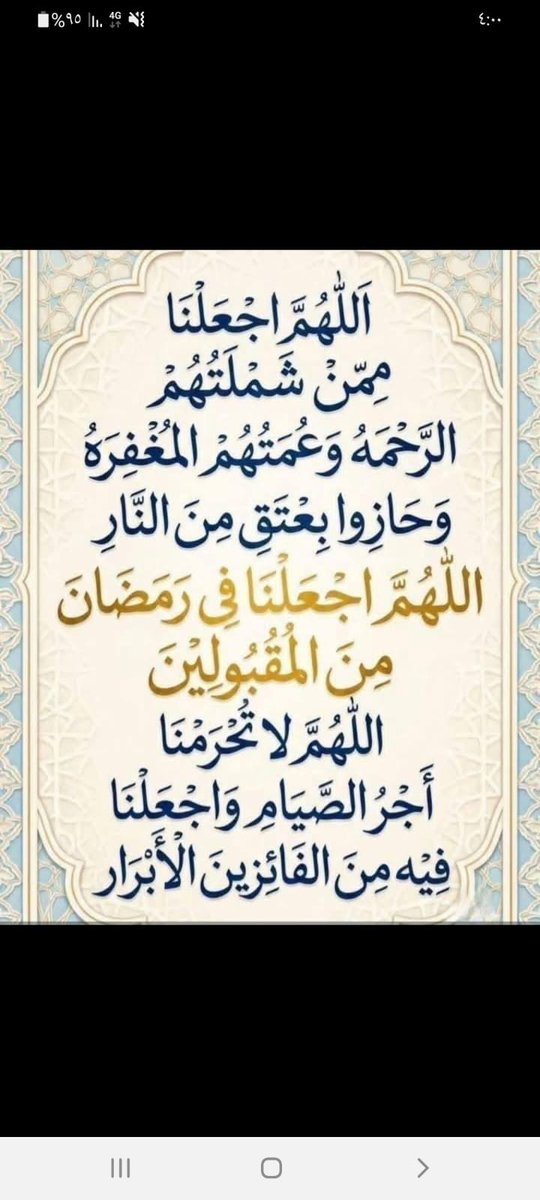 %٩٥ 4G ٤:٠٠
اَللّٰهُمَّ اجْعَلْنَا
مِمّنْ شَمْلَتُهُمْ
الرَّحْمَهُ وَعُمَتُهُمْ المُغْفِرَهُ
وَحَازِوا بِعْتَقِ مِنَ النَّارِ
اللّٰهُمَّ اجْعَلْنَا فِى رَمَضَانَ
مِنَ الْمُقُبُولِيْنَ
اللّٰهُمَّ لا تُحْرَمْنَا
أَجْرُ الصَّيَامِ وَاجْعَلْنَا
فِيْه مِنَ الفَائِزِينَ الْأَبْرَار